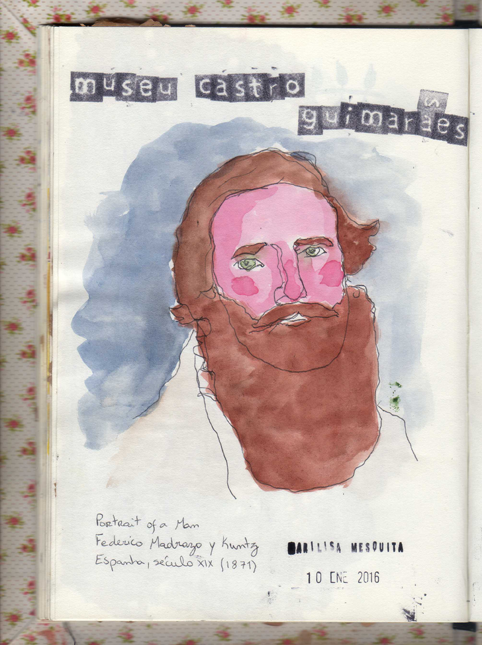 museu castro
guimarães
Portrait of a Man
Federico Madrazo y Kuntz
Espanha, século XIX (1871)
MARILISA MESQUITA
10 ENE 2016